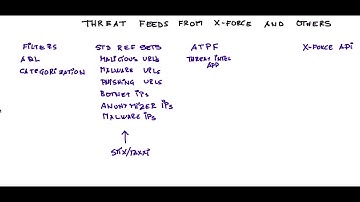 THREAT FEEDS FROM X-FORCE AND OTHERS
FILTERS
AQL
CATEGORIZATION
STD REF SETS
MALICIOUS URLS
MALWARE URLS
PHISHING URLS
BOTNET IPS
ANONYMIZER IPS
MALWARE IPS
STIX/TAXXI
ATPF
THREAT INTEL
APP
X-FORCE API